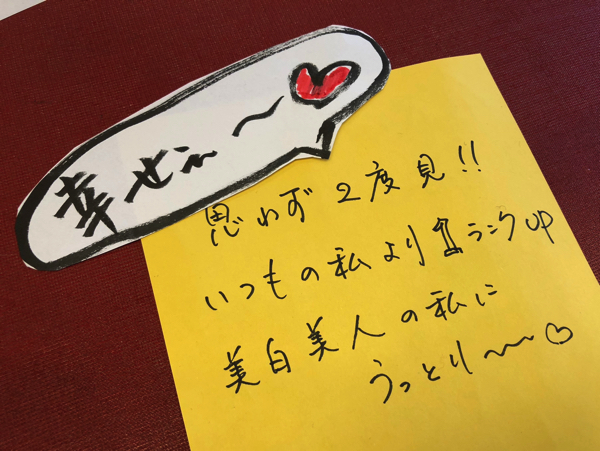 幸せぇ〜♥
思わず2度見!!
いつもの私より1ランクUP
美白美人の私に
うっとり〜〜♡